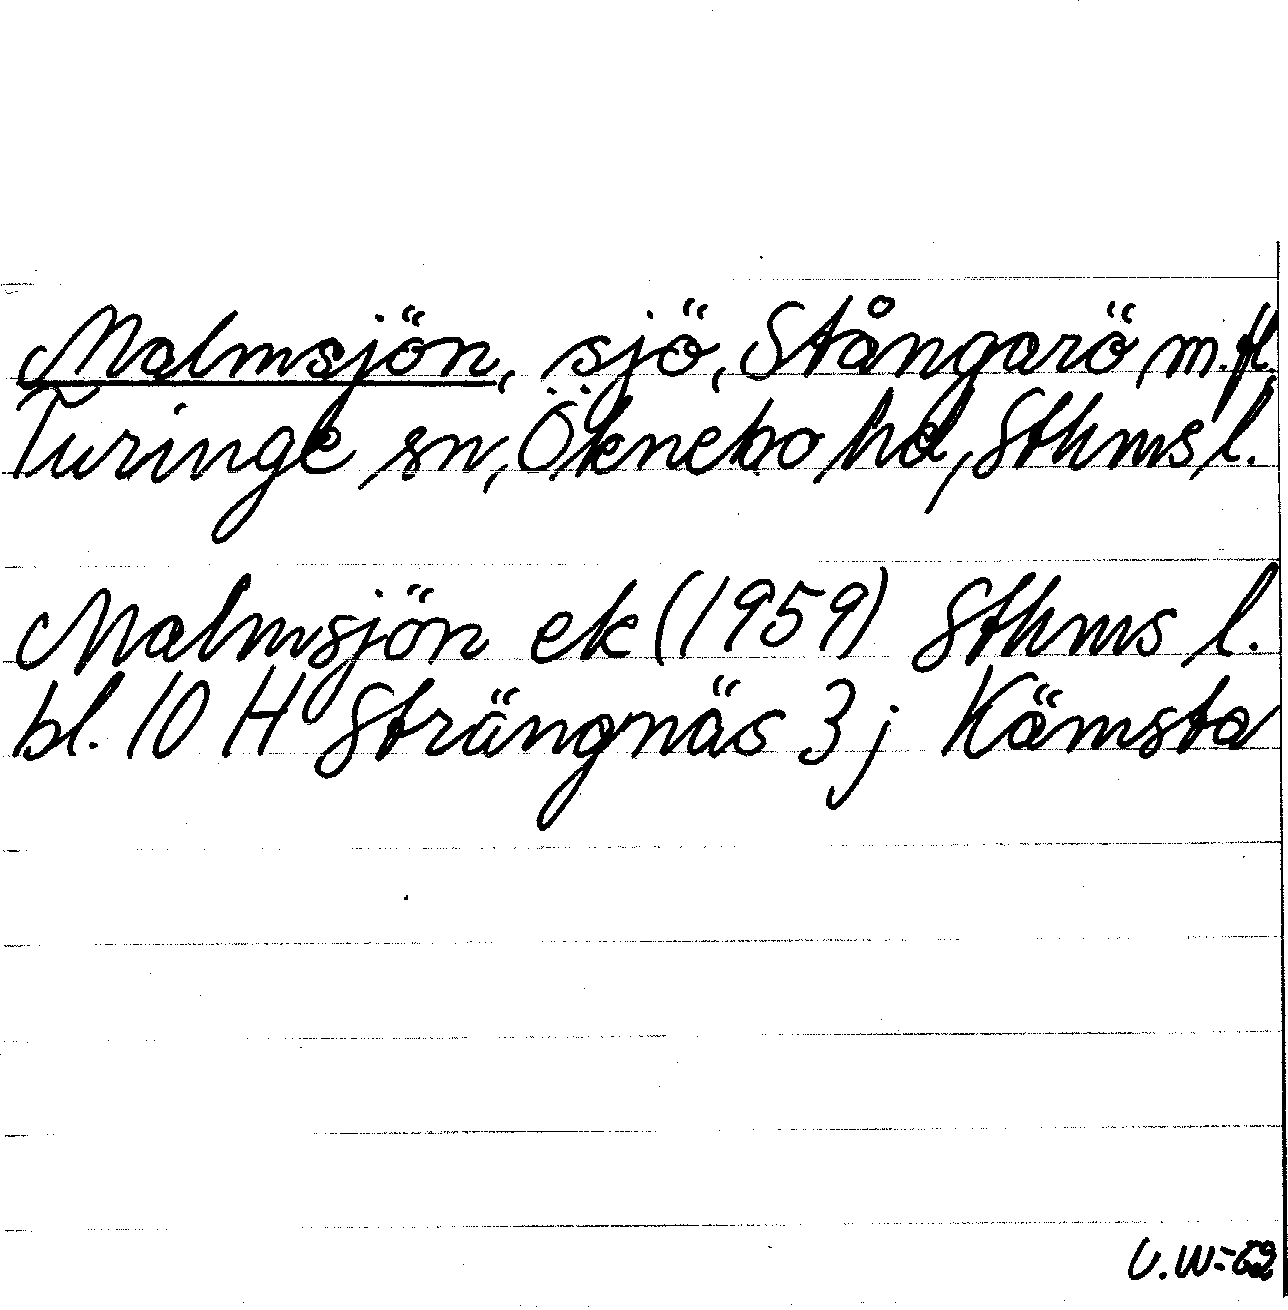 Malmsjön, sjö, Stångarö m.fl.
Turinge sn, Öknebo hd, Sthms l.
Malmsjön ek (1959) Sthms l.
bl. 10 H Strängnäs 3 j Kämsta
U.W-62